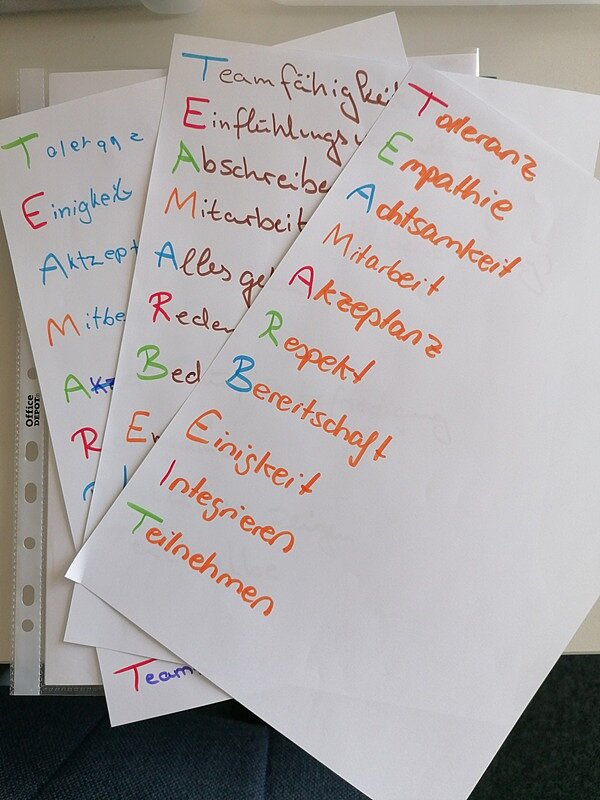 Toleranz
Einigkeit
Aktzept
Mitbe
A
R
Office
DEPOT
Teamfähigkei
Einflühlungs
Abschreibe
Mitarbeit
Alles ge
Reden
Bed
E
Tolleranz
Empathie
Achtsamkeit
Mitarbeit
Akzeptanz
Respekt
Bereitschaft
Einigkeit
Integrieren
Teilnehmen
Team